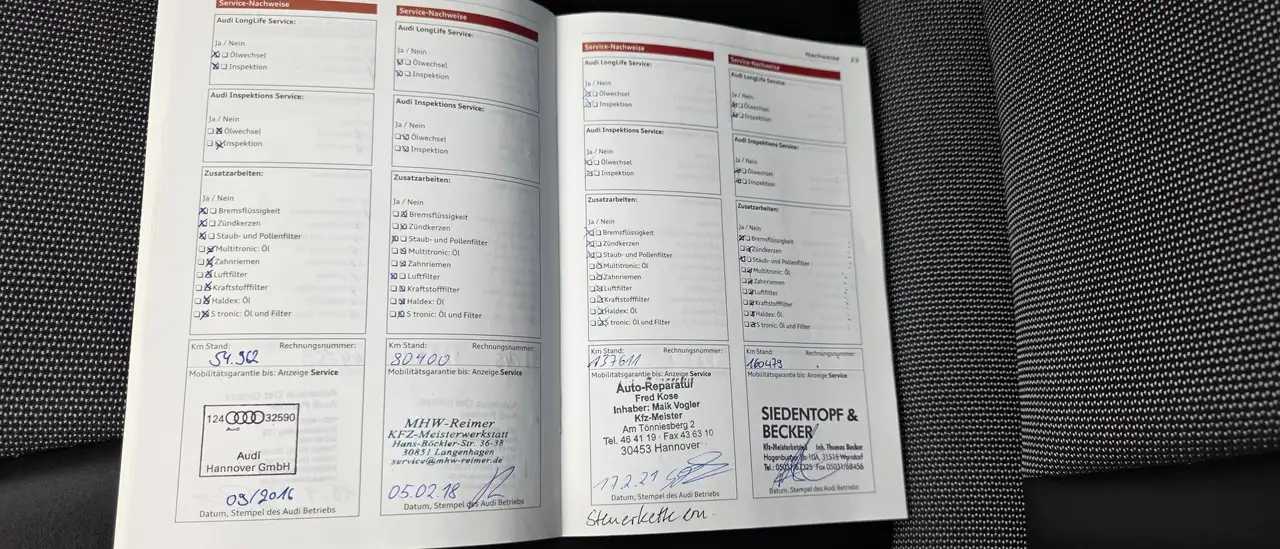 Service-Nachweise
Audi LongLife Service:
Ja / Nein
Ölwechsel
Inspektion
Audi Inspektions Service:
Ja / Nein
Ölwechsel
Inspektion
Zusatzarbeiten:
Ja / Nein
Bremsflüssigkeit
Zündkerzen
Staub- und Pollenfilter
Multitronic: Öl
Zahnriemen
Luftfilter
Kraftstofffilter
Haldex: Öl
S tronic: Öl und Filter
Km Stand: Rechnungsnummer:
54.962
Mobilitätsgarantie bis: Anzeige Service
124 32590
Audi
Audi
Hannover GmbH
09/2016
Datum, Stempel des Audi Betriebs
Service-Nachweise
Audi LongLife Service:
Ja / Nein
Ölwechsel
Inspektion
Audi Inspektions Service:
Ja / Nein
Ölwechsel
Inspektion
Zusatzarbeiten:
Ja / Nein
Bremsflüssigkeit
Zündkerzen
Staub- und Pollenfilter
Multitronic: Öl
Zahnriemen
Luftfilter
Kraftstofffilter
Haldex: Öl
S tronic: Öl und Filter
Km Stand: Rechnungsnummer:
80400
Mobilitätsgarantie bis: Anzeige Service
MHW-Reimer
KFZ-Meisterwerkstatt
Hans-Böckler-Str. 36-38
30851 Langenhagen
service@mhw-reimer.de
05.02.18
Datum, Stempel des Audi Betriebs
Service-Nachweise
Audi LongLife Service:
Ja / Nein
Ölwechsel
Inspektion
Audi Inspektions Service:
Ja / Nein
Ölwechsel
Inspektion
Zusatzarbeiten:
Ja / Nein
Bremsflüssigkeit
Zündkerzen
Staub- und Pollenfilter
Multitronic: Öl
Zahnriemen
Luftfilter
Kraftstofffilter
Haldex: Öl
S tronic: Öl und Filter
Km Stand: Rechnungsnummer:
137611
Mobilitätsgarantie bis: Anzeige Service
Auto-Reparatur
Fred Kose
Inhaber: Maik Vogler
Kfz-Meister
Am Tönniesberg 2
Tel. 46 41 19 · Fax 43 63 10
30453 Hannover
17.2.21
Datum, Stempel des Audi Betriebs
Steuerkette
Nachweise
Service-Nachweise
Audi LongLife Service:
Ja / Nein
Ölwechsel
Inspektion
Audi Inspektions Service:
Ja / Nein
Ölwechsel
Inspektion
Zusatzarbeiten:
Ja / Nein
Bremsflüssigkeit
Zündkerzen
Staub- und Pollenfilter
Multitronic: Öl
Zahnriemen
Luftfilter
Kraftstofffilter
Haldex: Öl
S tronic: Öl und Filter
Km Stand: Rechnungsnummer:
160479
Mobilitätsgarantie bis: Anzeige Service
SIEDENTOPF &
BECKER
Kfz-Meisterbetrieb Inh. Thomas Becker
10A, 31515 Wunstorf
Fax 05031/68456
Datum, Stempel des Audi Betriebs